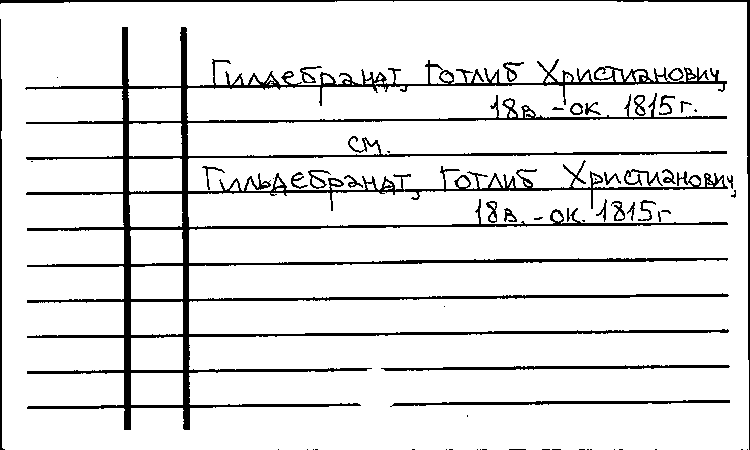 Гилдебрандт, Готлиб Христианович,
18в. - ок. 1815 г.
см.
Гильдебрандт, Готлиб Христианович,
18в. - ок. 1815г